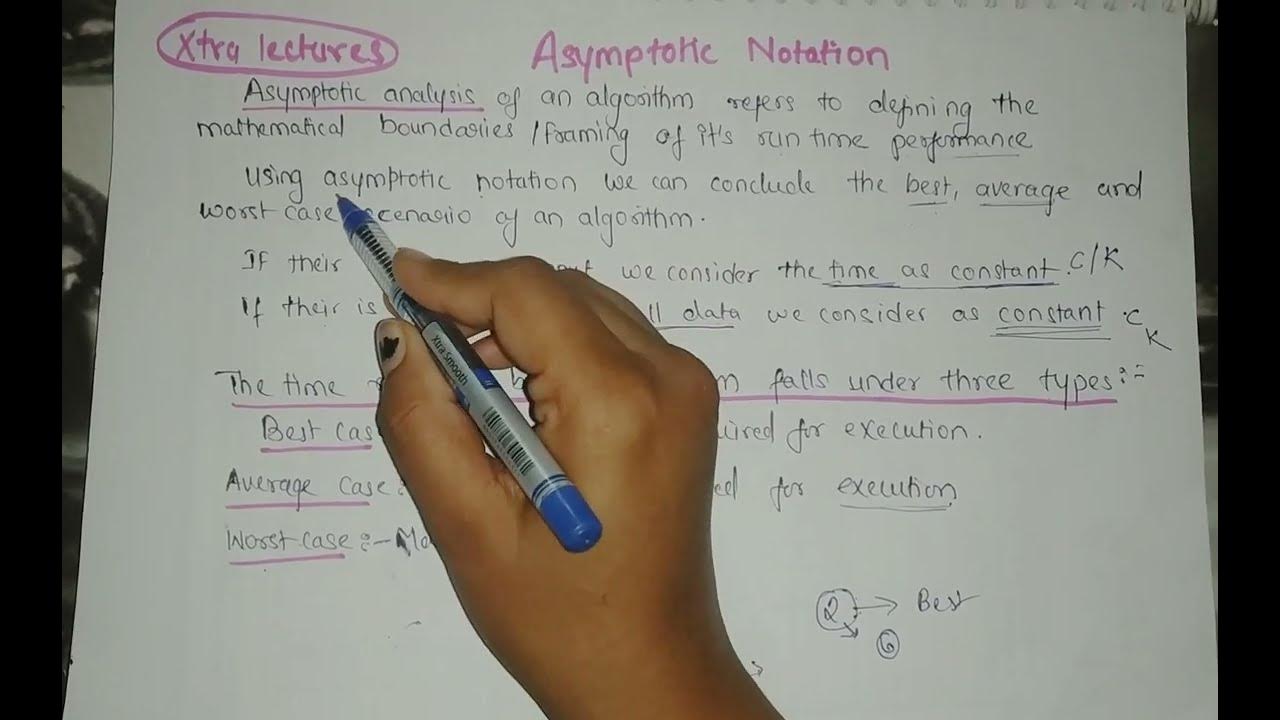 Xtra lectures Asymptotic Notation
Asymptotic analysis of an algorithm refers to defining the
mathematical boundaries / framing of it's run time performance
Using asymptotic notation we can conclude the best, average and
worst case scenario of an algorithm.
If their we consider the time as constant. C/K
If their is ll data we consider as constant . C
K
The time falls under three types :-
Best cas uired for execution.
Average case : ed for execution
Worst case :-
2 → Best
6
Xtra Smooth